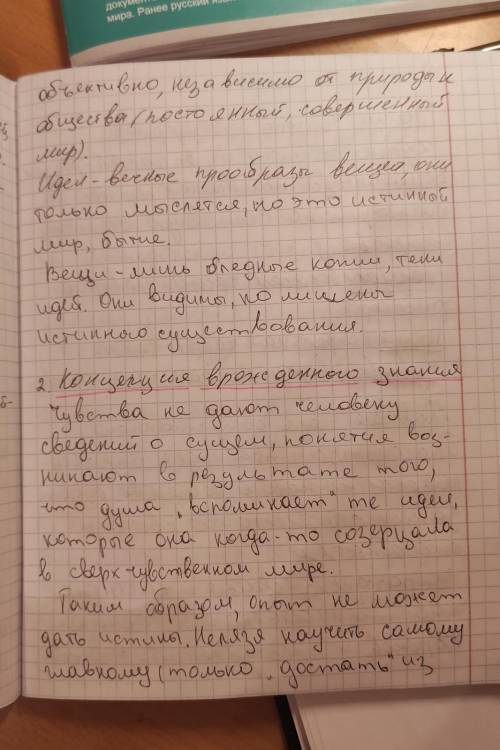 докумен
мира. Ранее русский язы
объективно, независимо от природы и
общества (постоянный, совершенный
мир).
Идеи - вечные прообразы вещей, они
только мыслятся, но это истинный
мир, бытие.
Вещи - лишь бледные копии, тени
идей. Они видимы, но лишены
истинного существования.
2. Концепция врожденного знания
Чувства не дают человеку
сведений о сущем, понятия воз-
никают в результате того,
что душа „вспоминает" те идеи,
которые она когда-то созерцала
в сверхчувственном мире.
Таким образом, опыт не может
дать истины. Нельзя научить самому
главному (только „достать" из